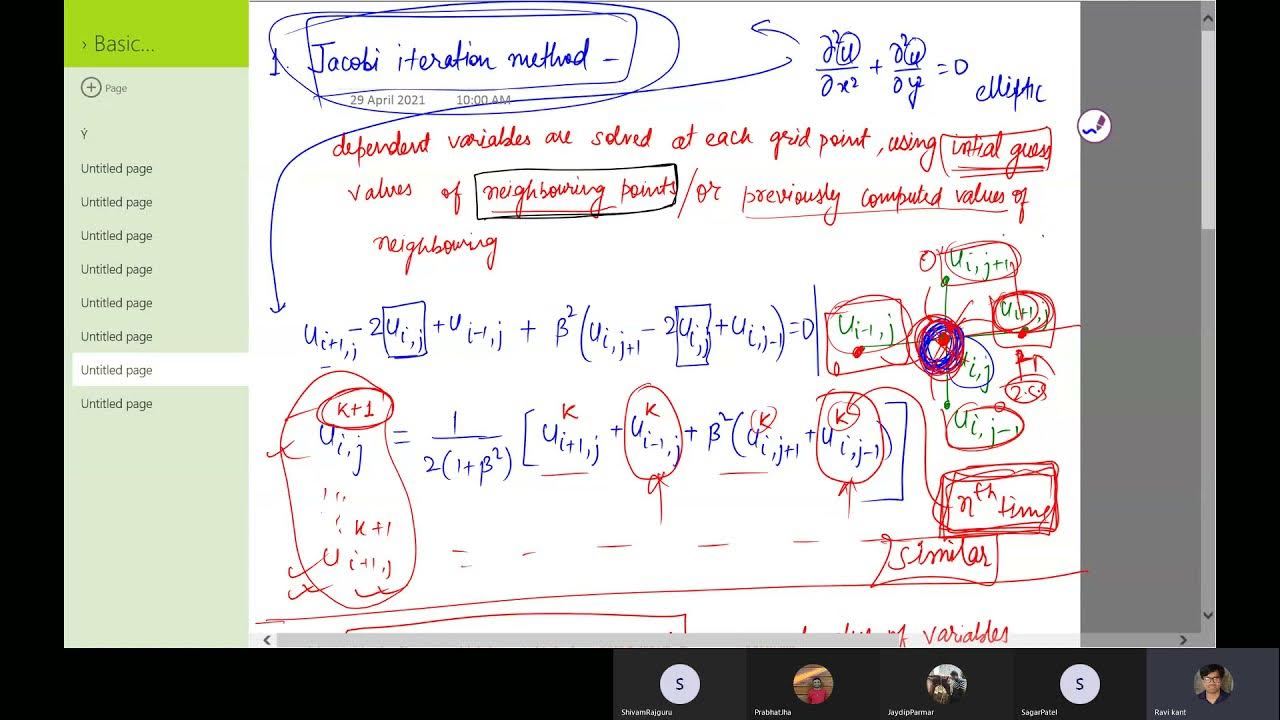 › Basic...
Page
Ÿ
Untitled page
Untitled page
Untitled page
Untitled page
Untitled page
Untitled page
Untitled page
Untitled page
1. Jacobi iteration method –
29 April 2021 10:00 AM
∂²u/∂x² + ∂²u/∂y² = 0 elliptic
dependent variables are solved at each grid point, using initial guess
values of neighbouring points / or previously computed values of
neighbouring
u_{i+1,j} – 2u_{i,j} + u_{i-1,j} + β²(u_{i,j+1} – 2u_{i,j} + u_{i,j-1}) = 0
u_{i,j+1}
u_{i-1,j}
u_{i+1,j}
u_{i,j}
u_{i,j-1}
u_{i,j}^{k+1} = 1/2(1+β²) [u_{i+1,j}^{k} + u_{i-1,j}^{k} + β²(u_{i,j+1}^{k} + u_{i,j-1}^{k})]
nth time
u_{i+1,j}^{k+1} = – – – – –
similar
of variables
S
S
ShivamRajguru
PrabhatJha
JaydipParmar
SagarPatel
Ravi kant